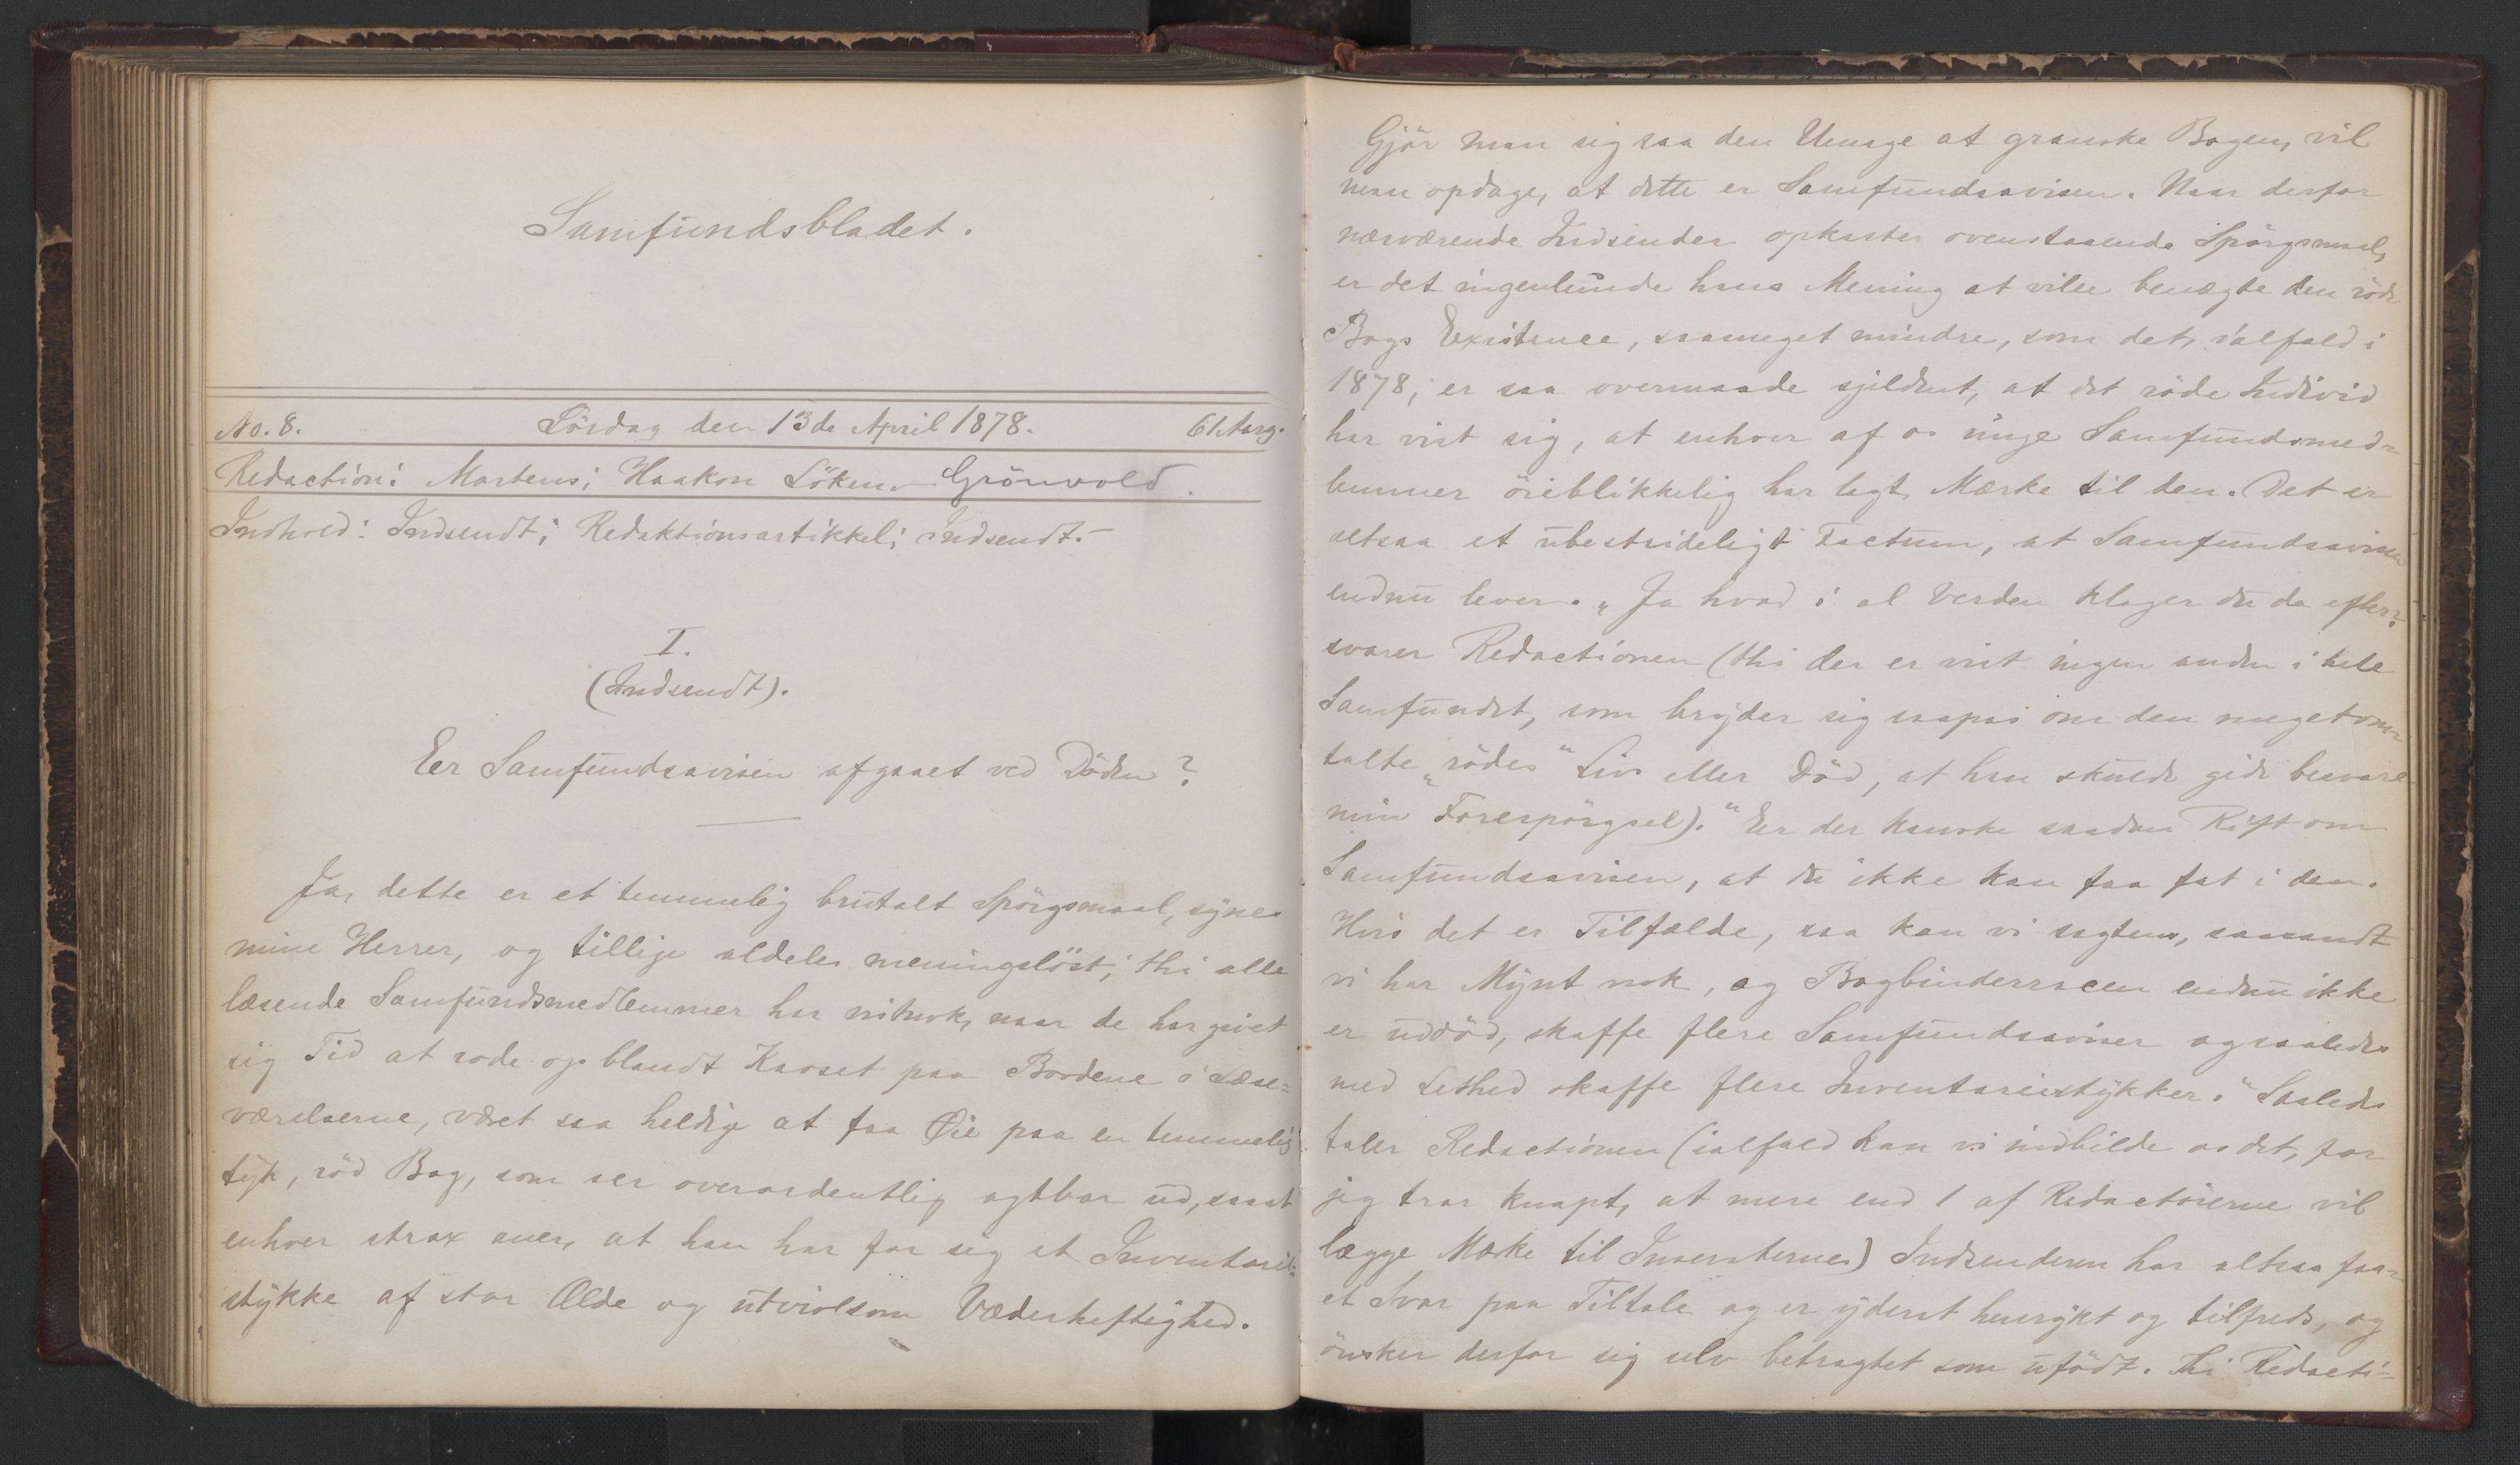 Samfundsbladet.
No. 8. Lördag den 13de April 1878. 61 Aarg.
Redaction: Martens; Haakon Löken Grönvold.
Indhold: Indsendt; Redaktionsartikkel; Indsendt.-
I.
(Indsendt).
Er Samfundsavisen afgaaet ved Döden?
Ja, dette er et temmelig brutalt Spörgsmaal, synes
mine Herrer, og tillige aldeles meningslöst; thi alle
læsende Samfundsmedlemmer har vistnok, naar de har givet
sig Tid at rode op blandt Kaoset paa Bordene i Læse-
værelserne, været saa heldige at faa Øie paa en temmelig
tyk, röd Bog, som ser overordentlig agtbar ud, saaat
enhver strax aner, at han har for sig et Inventarie-
stykke af stor Ælde og utvivlsom Væderheftighed.
Gjör man sig saa den Umage at granske Bogen, vil
man opdage, at dette er Samfundsavisen. Naar derfor
nærværende Indsender opkaster ovenstaaende Spörgsmaal,
er det ingenlunde hans Mening at ville benægte den röde
Bogs Existence, saameget mindre, som det, ialfald i
1878, er saa overmaade sjeldent, at det röde Individ
har vist sig, at enhver af os unge Samfundsmed-
lemmer öieblikkelig har lagt Mærke til den. Det er
altsaa et ubestrideligt Factum, at Samfundsavisen
endnu lever. „Ja hvad i al Verden klager du da efter?
svarer Redactionen (thi der er vist ingen anden i hele
Samfundet, som bryder sig saapas om den megetom-
talte „rödes" Liv eller Död, at han skulde gide besvare
min Forespörgsel). "Er der kanske saadan Rift om
Samfundsavisen, at du ikke kan faa fat i den.
Hvis det er Tilfælde, saa kan vi sagtens, saasandt
vi har Mynt nok, og Bogbinderracen endnu ikke
er uddöd, skaffe flere Samfundsaviser og saaledes
med Lethed skaffe flere Inventariestykker." Saaledes
taler Redactionen (ialfald kan vi indbilde os det, for
jeg tror knapt, at mere end 1 af Redactörerne vil
lægge Mærke til Inserterne) Indsenderen har altsaa faa-
et Svar paa Tiltale og er yderst henrykt og tilfreds, og
önsker derfor sig selv betragtet som ufödt. Thi Redacti-